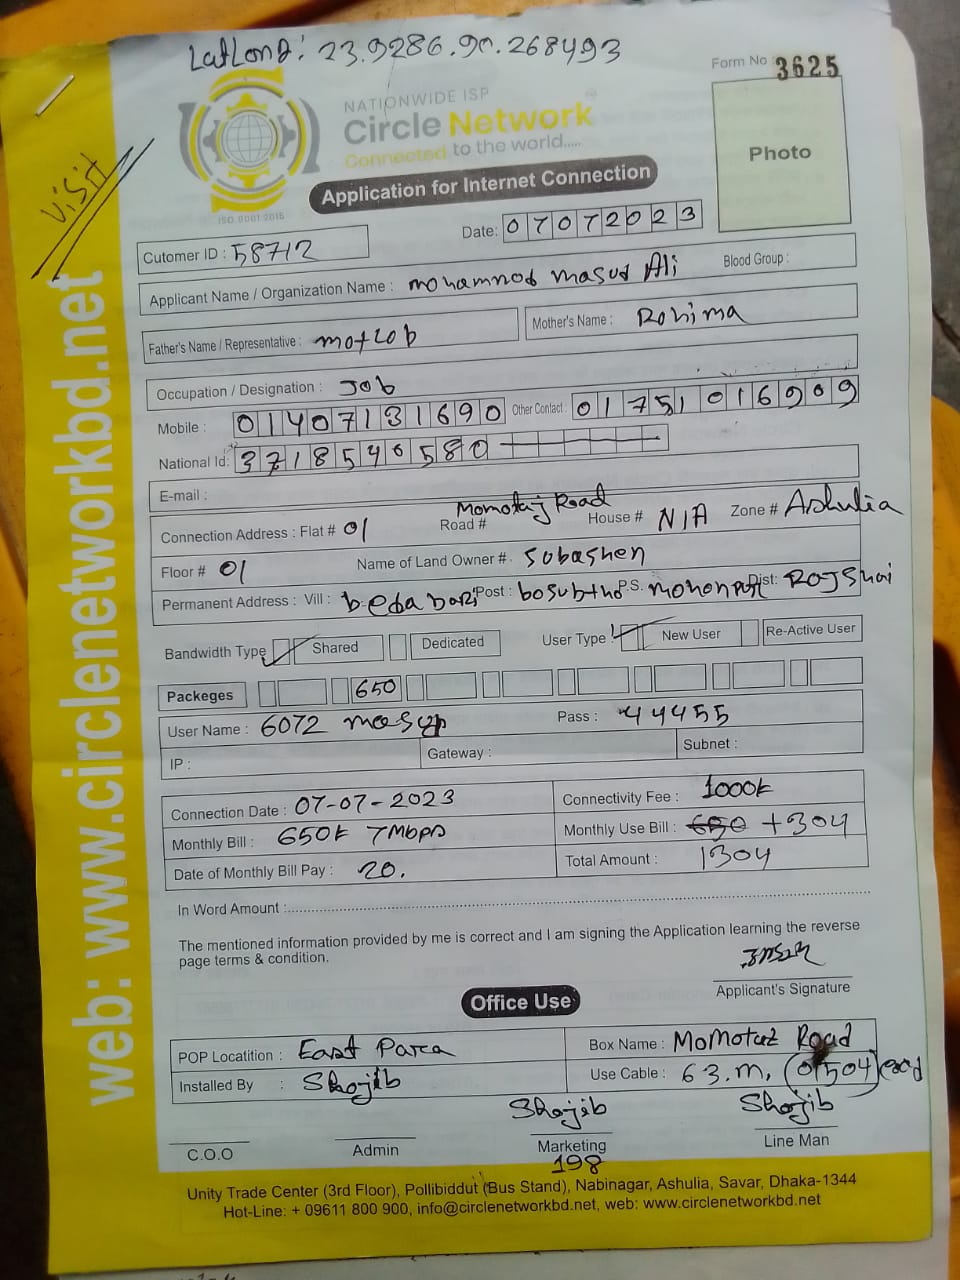 LatLong: 23.9286.90.268493
Form No 3625
NATIONWIDE ISP
Circle Network
Connected to the world.....
ISO 9001:2015
Photo
Visit
Application for Internet Connection
Date: 07072023
Cutomer ID : 58712
Applicant Name / Organization Name : mohammod masud Ali Blood Group :
Father's Name / Representative : motlob Mother's Name : Rohima
Occupation / Designation : Job
Mobile : 01407131690 Other Contact : 01751016909
National Id: 3718540580
E-mail :
Connection Address : Flat # 01 Road # Momotaj Road House # N/A Zone # Ashulia
Floor # 01 Name of Land Owner # Sobashen
Permanent Address : Vill : beda bari Post : P.S. Dist:
Bandwidth Type Shared Dedicated User Type : New User Re-Active User
Packeges 650
User Name : 6072 Pass : 44455
IP : Gateway : Subnet :
Connection Date : 07-07-2023 Connectivity Fee : 1000৳
Monthly Bill : 650৳ 7Mbps Monthly Use Bill : 650 +304
Date of Monthly Bill Pay : 20. Total Amount : 1304
In Word Amount :
The mentioned information provided by me is correct and I am signing the Application learning the reverse
page terms & condition.
Applicant's Signature
Office Use
POP Locatition : East Para Box Name : Momotaz Road
Installed By : Shojib Use Cable : 63.m,
Shojib Shojib
C.O.O Admin Marketing Line Man
198
Unity Trade Center (3rd Floor), Pollibiddut (Bus Stand), Nabinagar, Ashulia, Savar, Dhaka-1344
Hot-Line: + 09611 800 900, info@circlenetworkbd.net, web: www.circlenetworkbd.net
web: www.circlenetworkbd.net